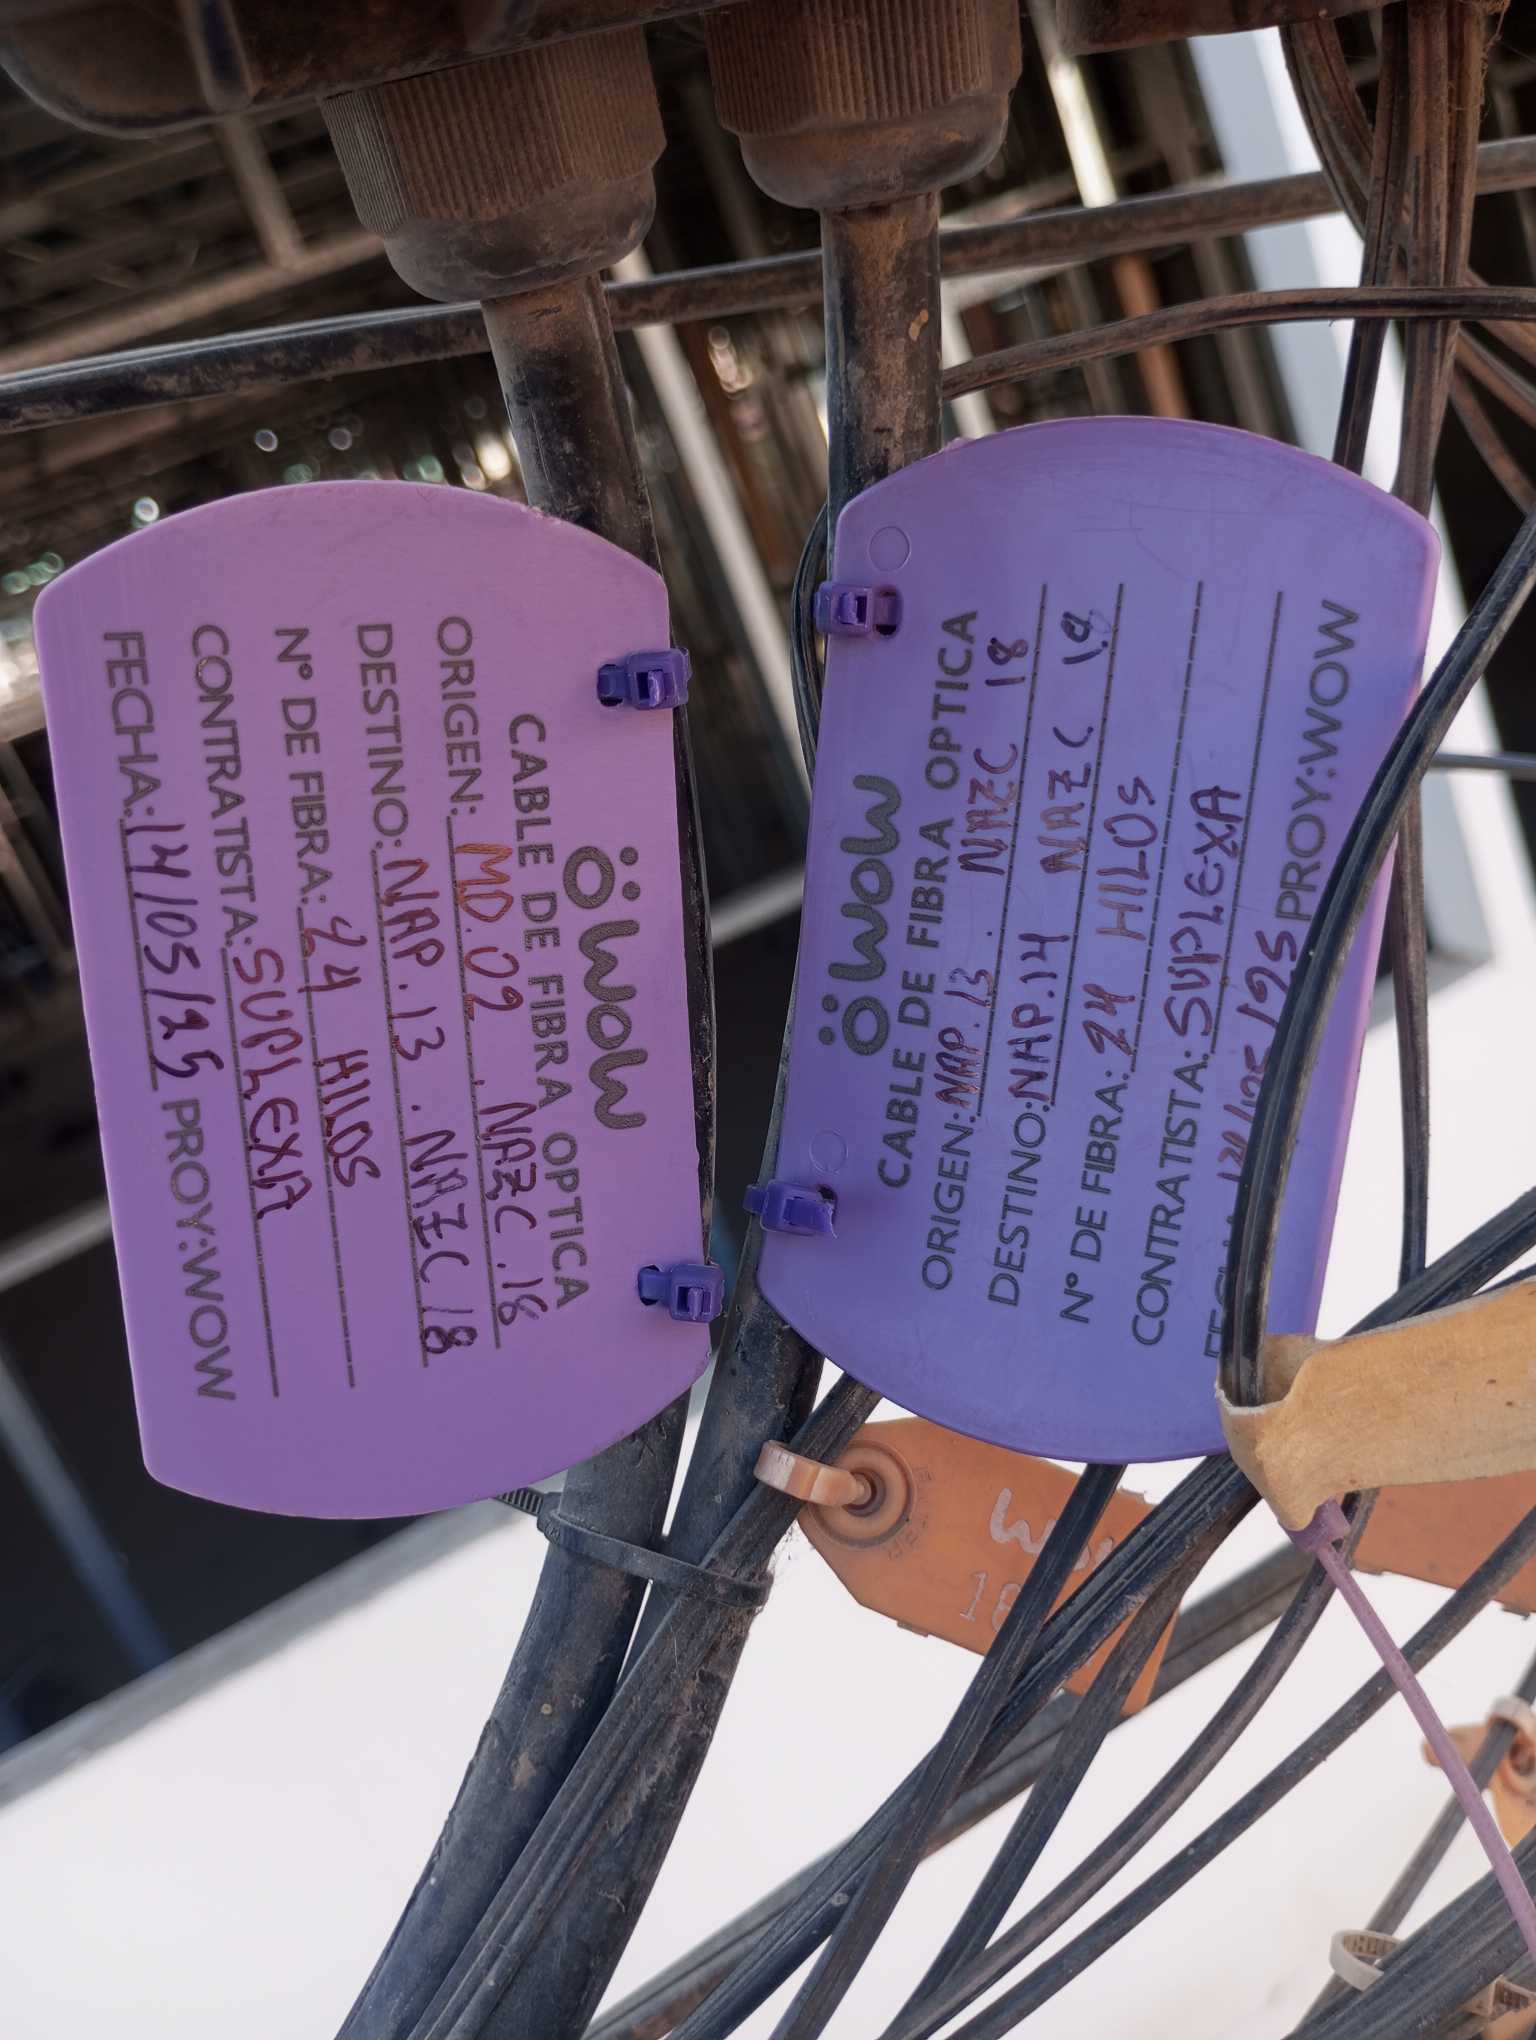 wow
CABLE DE FIBRA OPTICA
ORIGEN: MD.02. NAZC.18
DESTINO: NAP.13. NAZC 18
N° DE FIBRA: 24 HILOS
CONTRATISTA: SUPLEXA
FECHA: 14/05/25 PROY:WOW
wow
CABLE DE FIBRA OPTICA
ORIGEN: NAP.13. NAZC 18
DESTINO: NAP.14 NAZC 18
N° DE FIBRA: 24 HILOS
CONTRATISTA: SUPLEXA
PROY:WOW